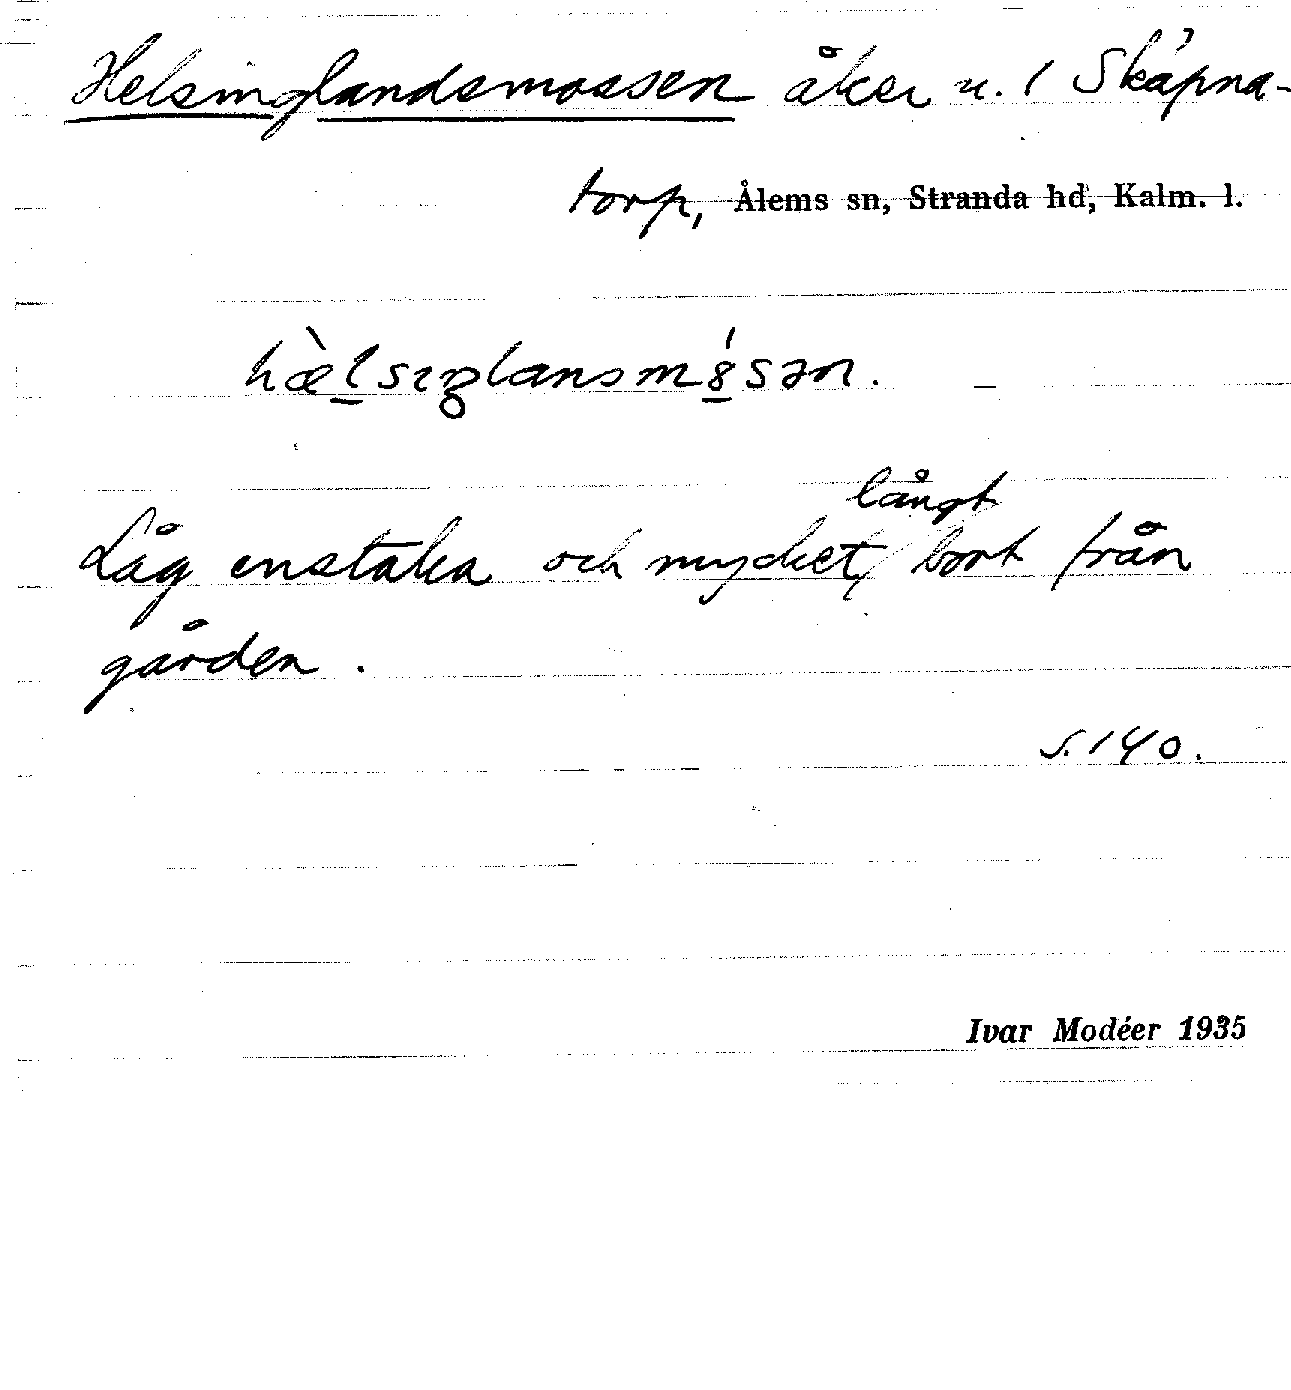 Helsinglandsmossen åker u. 1 Skäpna-
torp, Ålems sn, Stranda hd, Kalm. l.
hæ̀lsıŋlansm8́sən.
Låg enstaka och mycket långt bort från
gården.
s. 140.
Ivar Modéer 1935